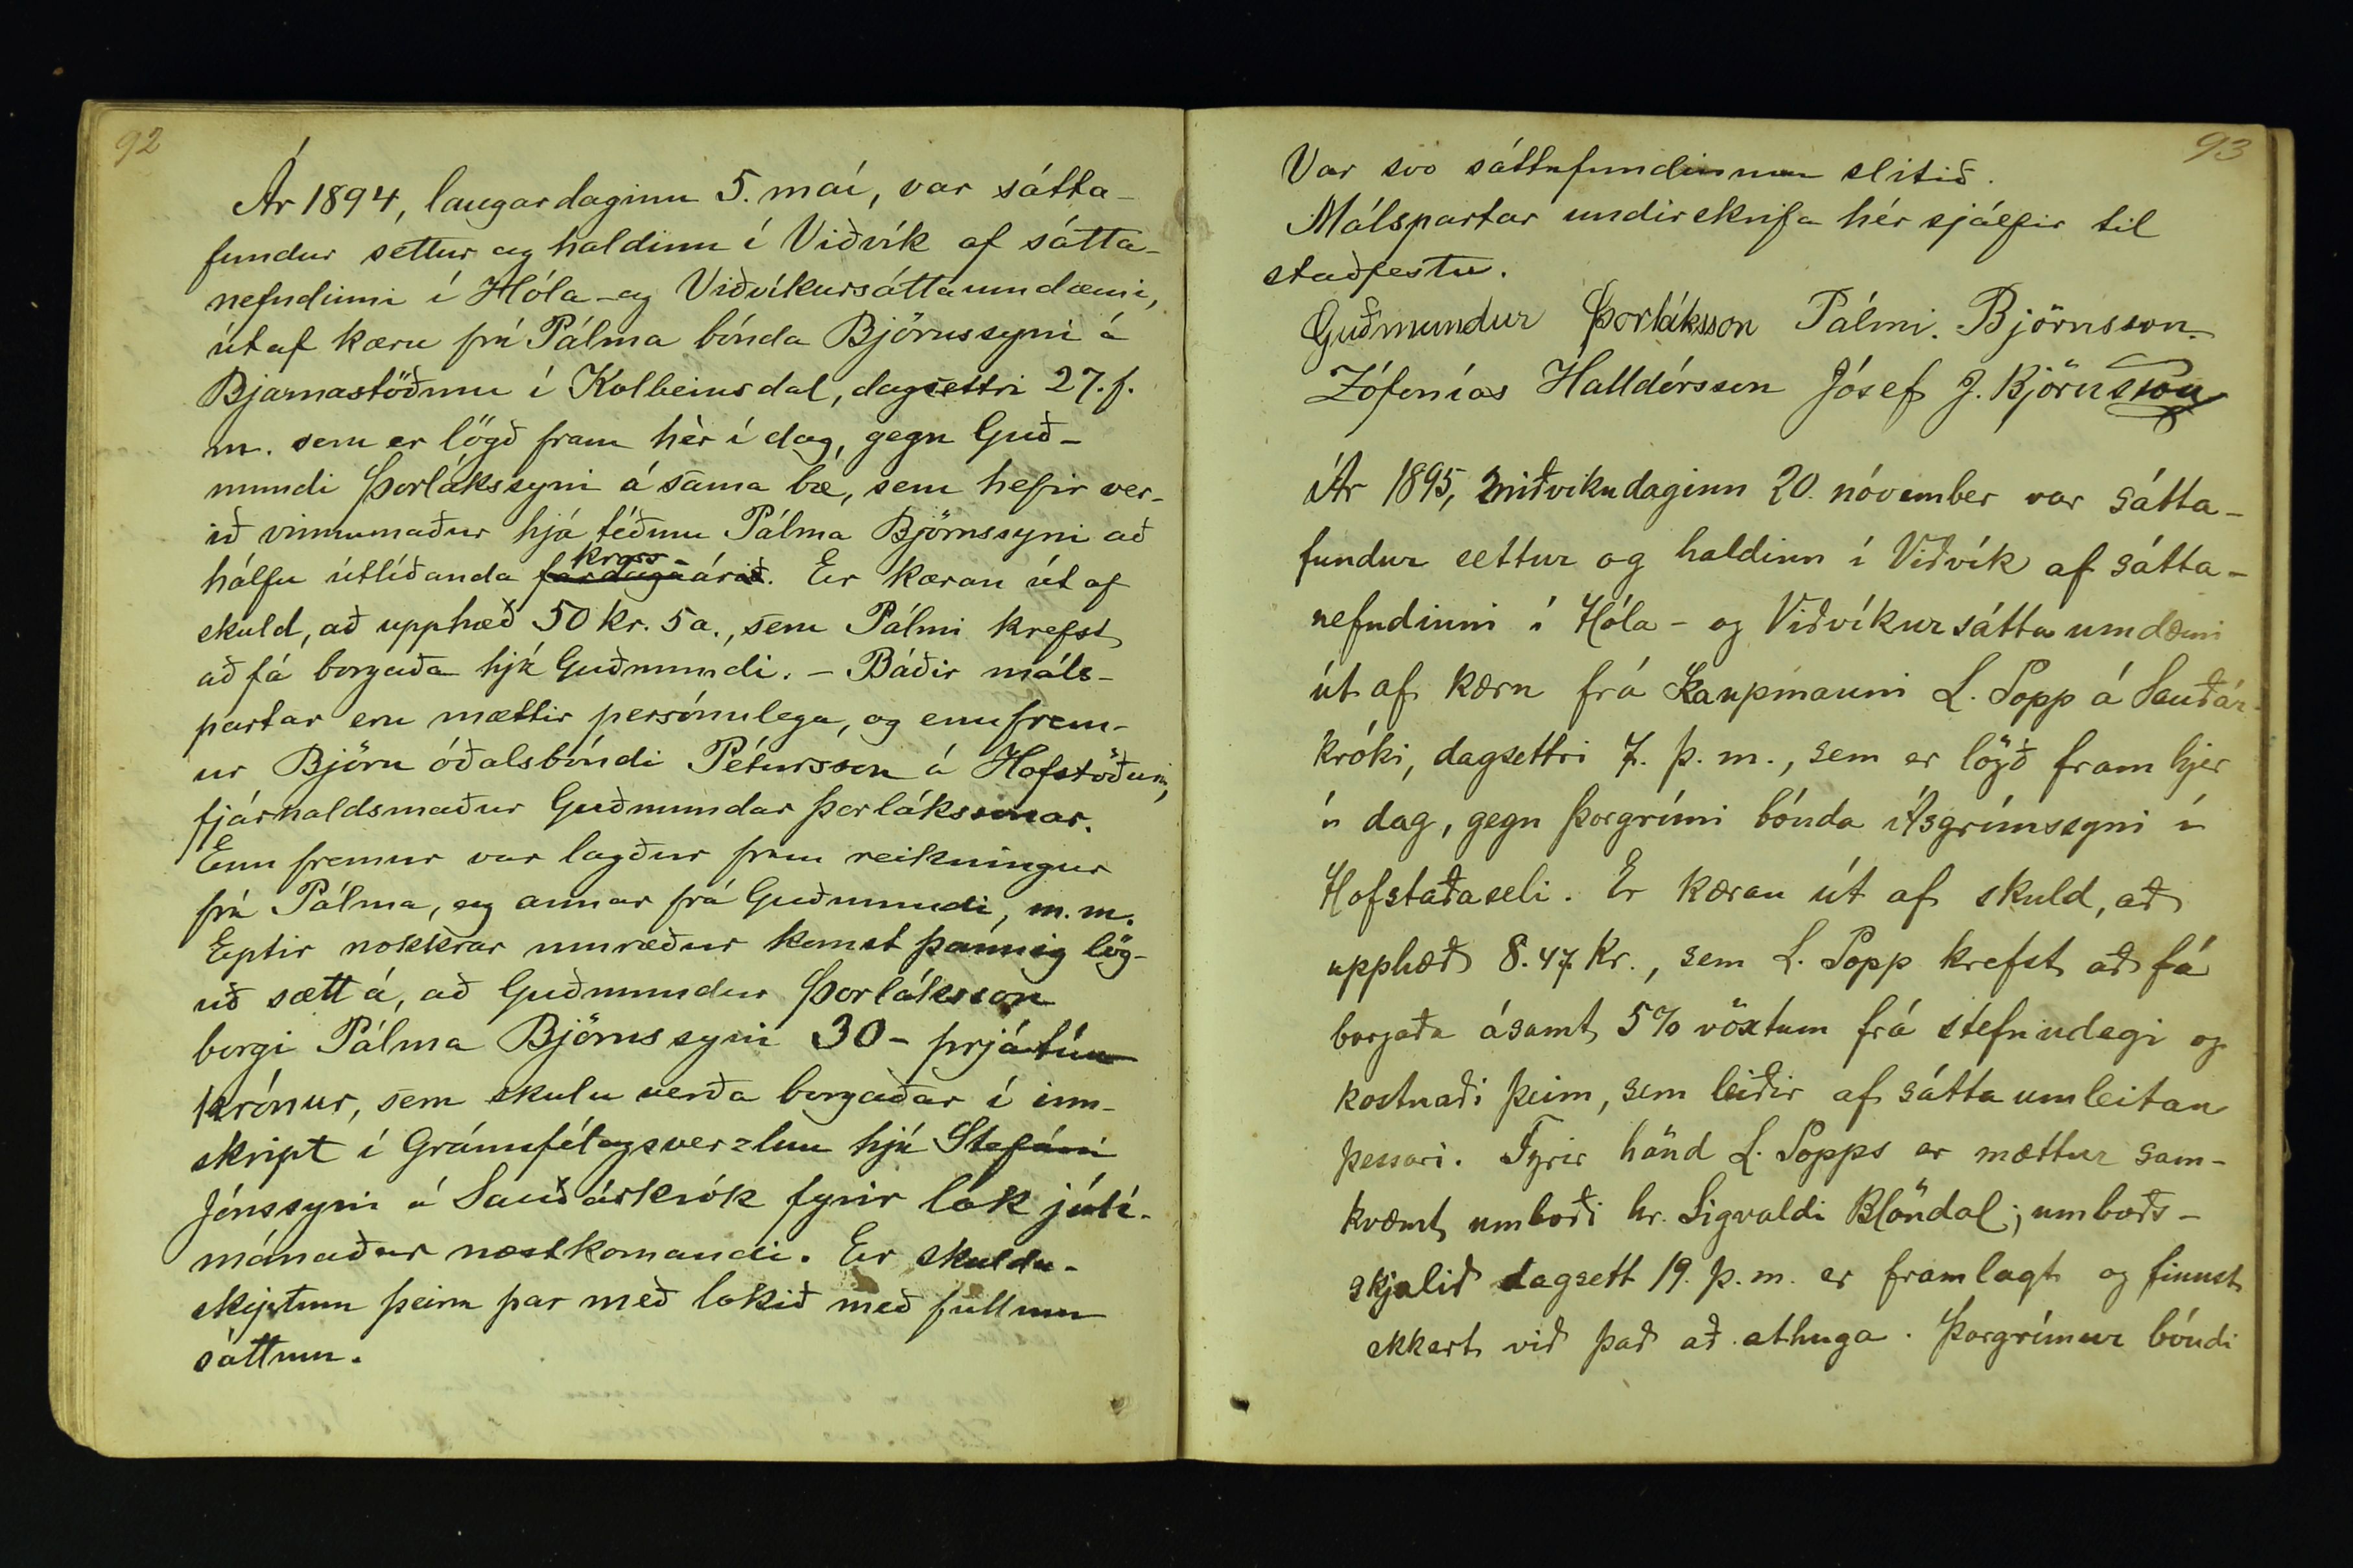 92
Ár 1894, laugardaginn 5. maí, var sátta-
fundur settur og haldinn í Viðvík af sátta-
nefndinni í Hóla- og Viðvíkursáttaumdæmi,
út af kæru frá Pálma bónda Björnssyni á
Bjarnastöðum í Kolbeinsdal, dagsettri 27. f.
m. sem er lögð fram hèr í dag, gegn Guð-
mundi Þorlákssyni á sama bæ, sem hefir ver-
ið vinnumaður hjá téðum Pálma Björnssyni að
kross-
hálfu útlíðanda fardagaárið. Er kæran út af
skuld, að upphæð 50 kr. 5 a., sem Pálmi krefst
að fá borgaða hjá Guðmundi. - Báðir máls-
partar eru mættir persónulega, og enn frem-
ur Björn óðalsbóndi Pétursson á Hofstöðum,
fjárhaldsmaður Guðmundar Þorlákssonar.
Enn fremur var lagður fram reikningur
frá Pálma, og annar frá Guðmundi, m. m.
Eptir nokkrar umræður komst þannig lög-
uð sætt á, að Guðmundur Þorláksson
borgi Pálma Björnssyni 30 - þrjátíu
krónur, sem skulu verða borgaðar í inn-
skript í Gránufélagsverzlun hjá Stefáni
Jónssyni á Sauðárkrók fyrir lok júlí-
mánaðar næstkomandi. Er skulda-
skiptum þeim þar með lokið með fullum
sáttum.
93
Var svo sáttafundinum slitið.
Málspartar undirskrifa hér sjálfir til
staðfestu.
Guðmundur Þorláksson Pálmi. Björnsson.
Zófonías Halldórsson Jósef J. Björnsson
Ár 1895, miðvikudaginn 20. nóvember var sátta-
fundur settur og haldinn í Viðvík af sátta-
nefndinni í Hóla- og Viðvíkursáttaumdæmi
út af kæru frá Kaupmanni L. Popp á Sauðár-
króki, dagsettri 7. þ. m., sem er lögð fram hjer
í dag, gegn Þorgrími bónda Ásgrímssyni í
Hofstaðaseli. Er kæran út af skuld, að
upphæð 8.47 kr., sem L. Popp krefst að fá
borgaða ásamt 5% vöxtum frá stefnudegi og
kostnaði þeim, sem leiðir af sáttaumleitan
þessari. Fyrir hönd L. Popps er mættur sam-
kvæmt umboði hr. Sigvaldi Blöndal; umboðs-
skjalið dagsett 19. þ. m. er framlagt og finnst
ekkert við það að athuga. Þorgrímur bóndi